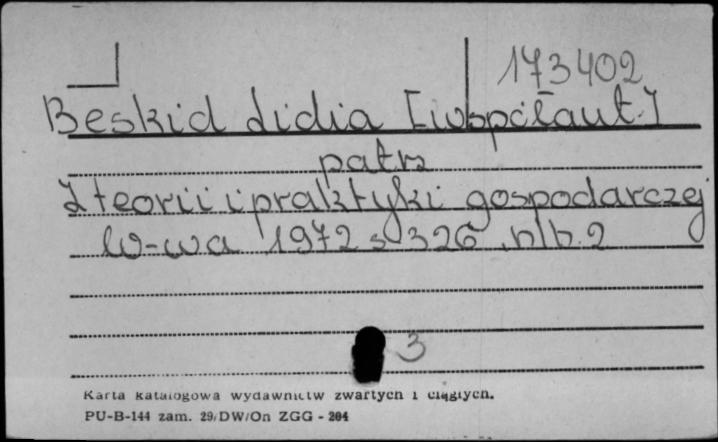 173402
Beskid Lidia [współaut.]
patrz
Z teorii i praktyki gospodarczej
W-wa 1972 s 326, nlb. 2
3
Karta katalogowa wydawnictw zwartych i ciągłych.
PU-B-144 zam. 29/DW/On ZGG - 204